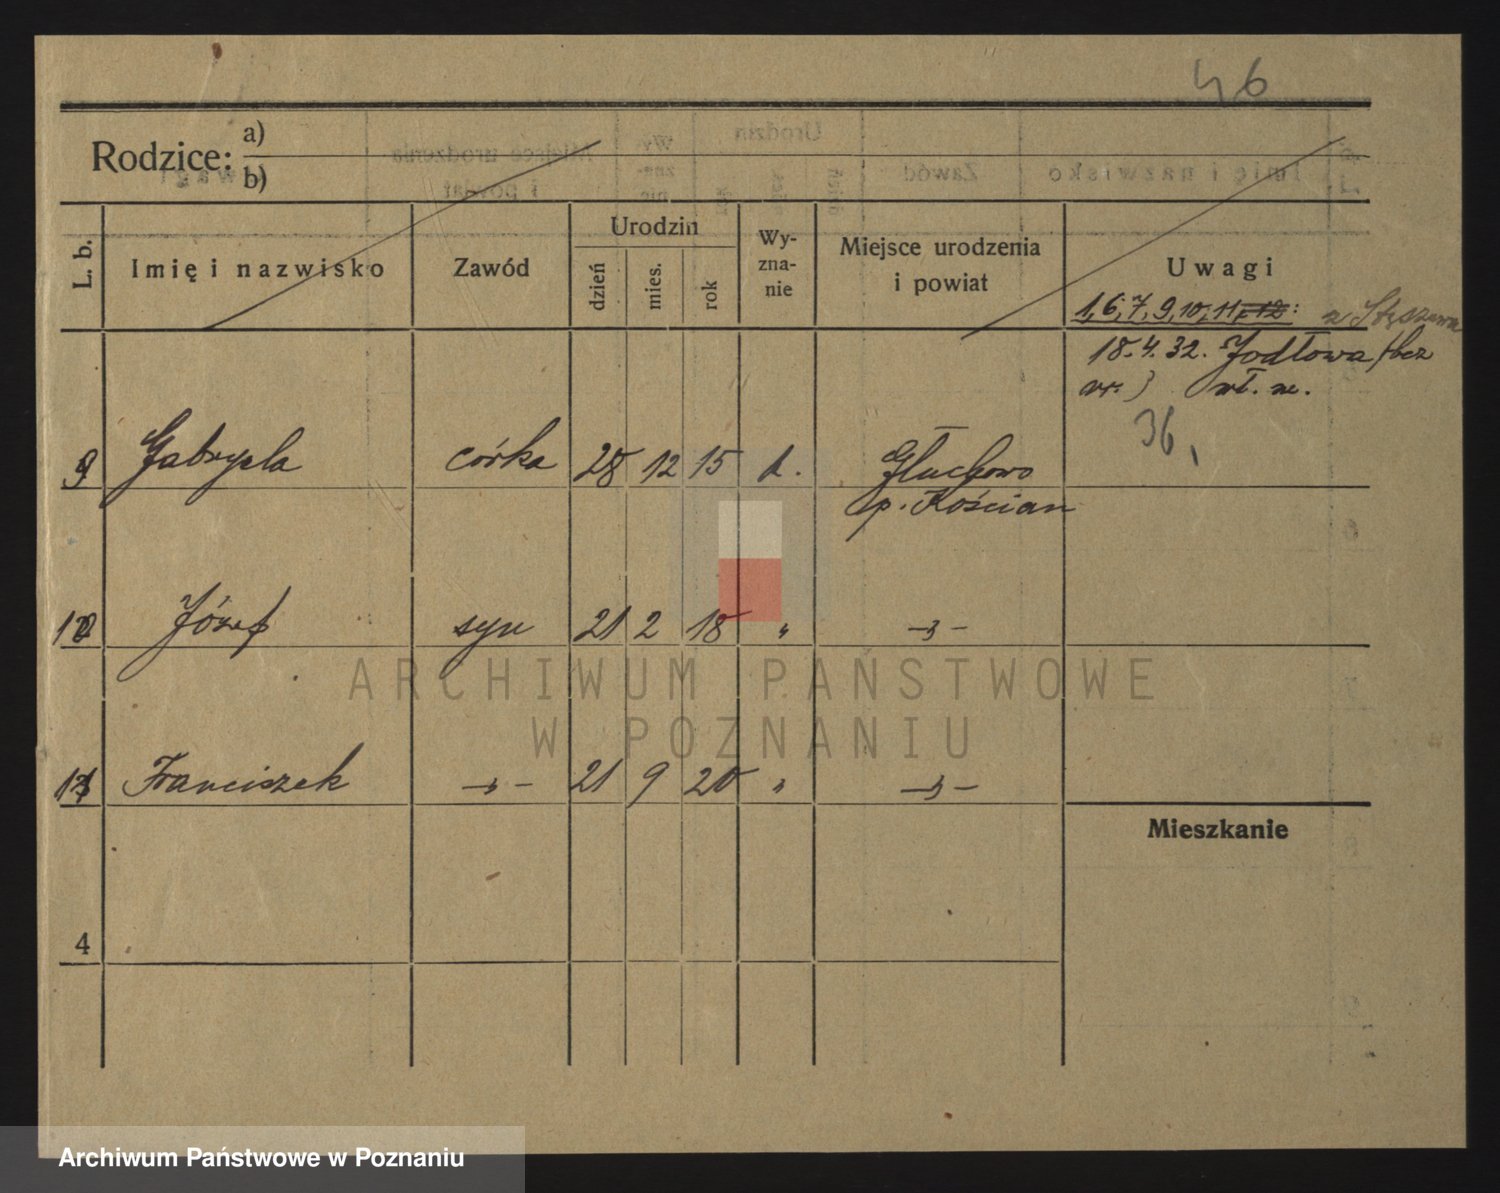 46
Rodzice: a)
b)
L. b. Imię i nazwisko Zawód Urodzin dzień mies. rok Wy-zna-nie Miejsce urodzenia i powiat Uwagi
1, 6, 7, 9, 10, 11, 12: z Stęszewa
18.4.32. Jodłowa / bez
nr.) wł. m.
36,
9 Gabryela córka 28 12 15 k. Głuchowo
p. Kościan
10 Józef syn 21 2 18 " -"-
11 Franciszek -"- 21 9 20 " -"-
Mieszkanie
4
ARCHIWUM PAŃSTWOWE
W POZNANIU
Archiwum Państwowe w Poznaniu